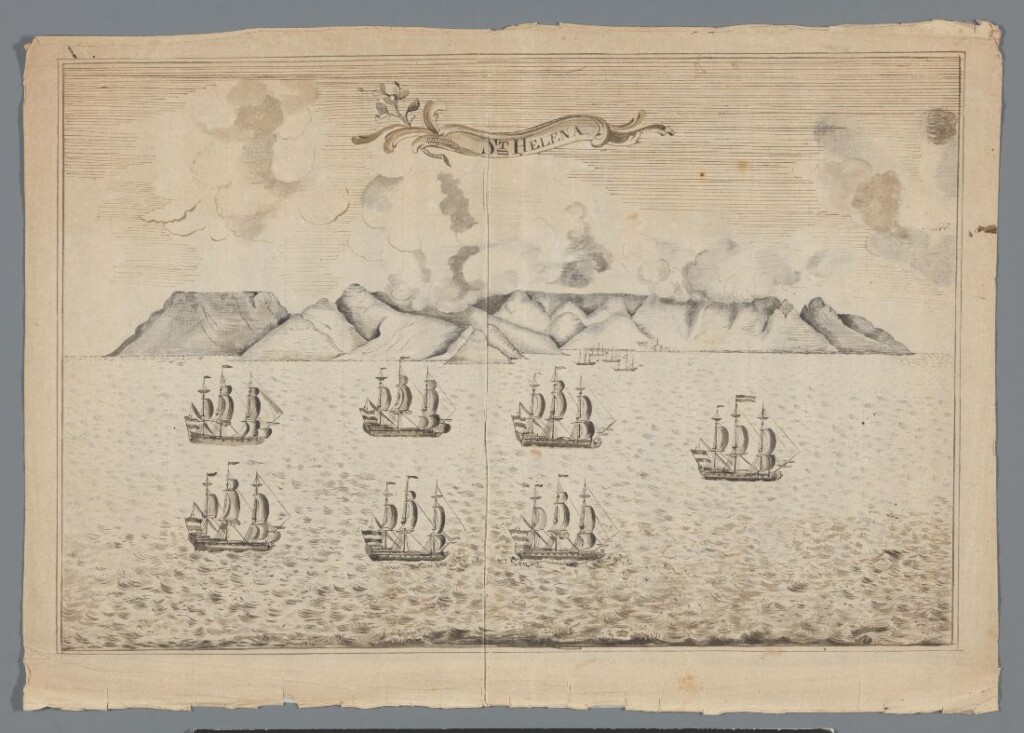 ST HELENA